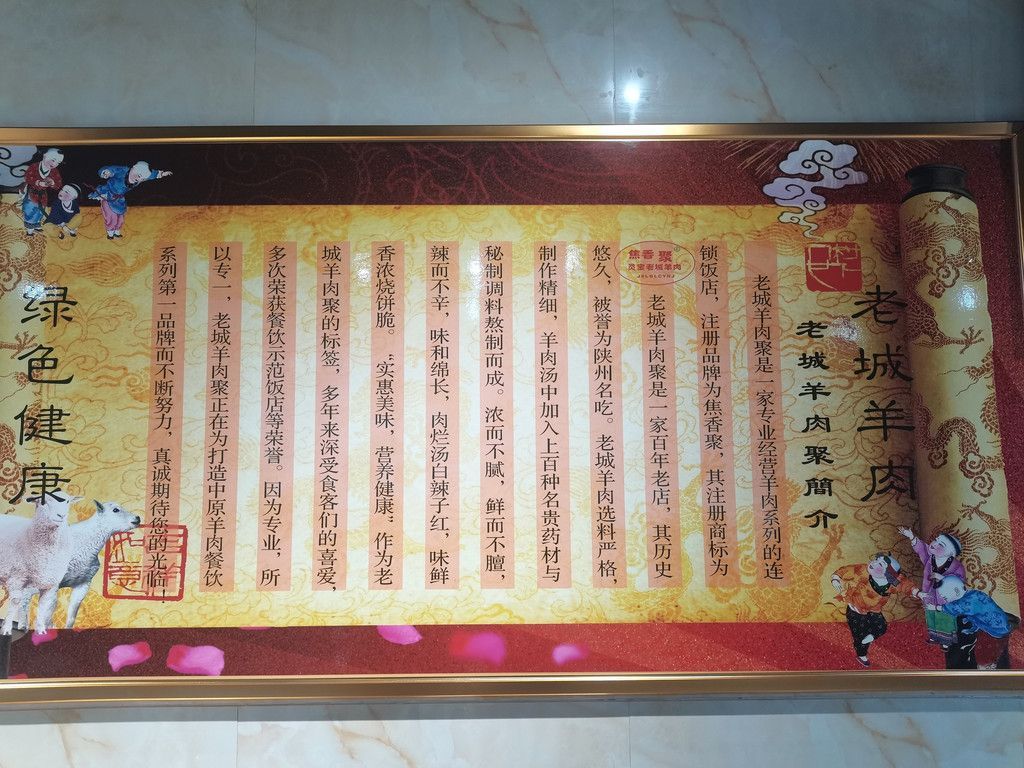 老城羊肉
老城羊肉聚簡介
老城羊肉聚是一家专业经营羊肉系列的连
锁饭店，注册品牌为焦香聚，其注册商标为
焦香聚®
灵宝老城羊肉
老城羊肉聚是一家百年老店，其历史
悠久，被誉为陕州名吃。老城羊肉选料严格，
制作精细，羊肉汤中加入上百种名贵药材与
秘制调料熬制而成。浓而不腻，鲜而不膻，
辣而不辛，味和绵长，肉烂汤白辣子红，味鲜
香浓烧饼脆。“实惠美味，营养健康”作为老
城羊肉聚的标签，多年来深受食客们的喜爱，
多次荣获餐饮示范饭店等荣誉。因为专业，所
以专一，老城羊肉聚正在为打造中原羊肉餐饮
系列第一品牌而不断努力，真诚期待您的光临！
绿色健康